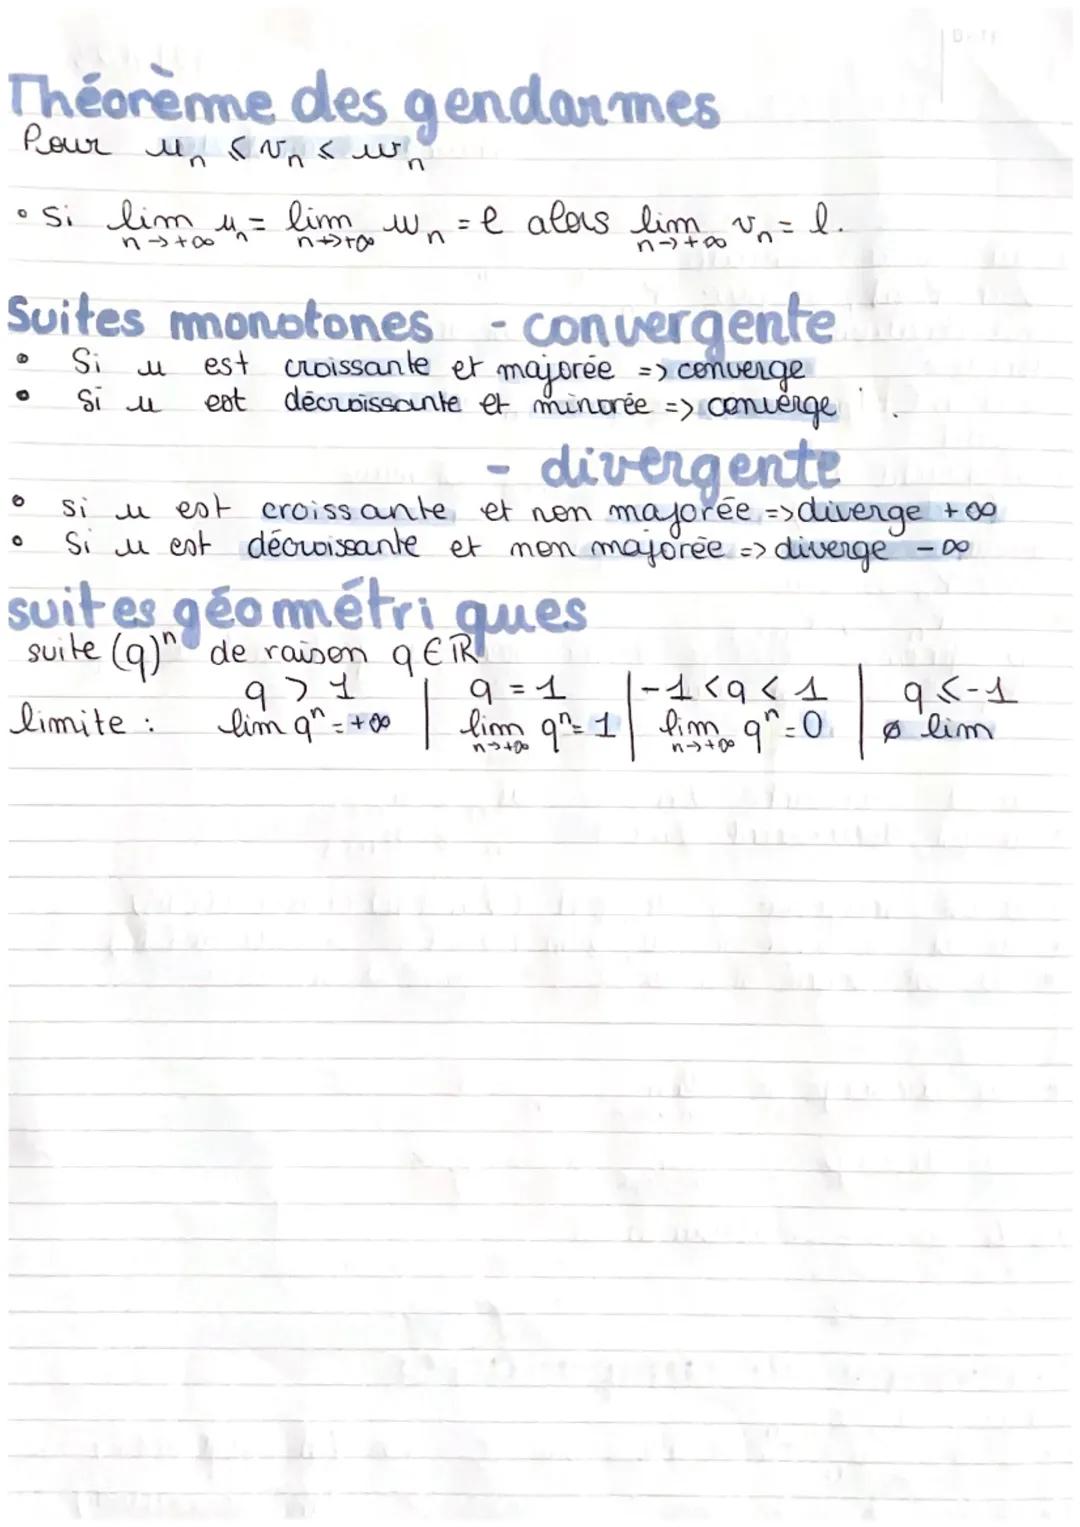 Théorème des gendarmes
Pour uₙ ⩽ vₙ ⩽ wₙ
• Si lim uₙ = lim wₙ = l alors lim vₙ = l.
n→+∞ n→+∞ n→+∞
Suites monotones - convergente
• Si u est croissante et majorée => converge
• Si u est décroissante et minorée => converge
- divergente
• si u est croissante et non majorée => diverge +∞
• Si u est décroissante et non majorée => diverge -∞
suites géométriques
suite (q)ⁿ de raison q ∈ ℝ
q > 1 | q = 1 | -1 < q < 1 | q ⩽ -1
limite : lim qⁿ = +∞ | lim qⁿ = 1 | lim qⁿ = 0 | ∅ lim
n→+∞ n→+∞